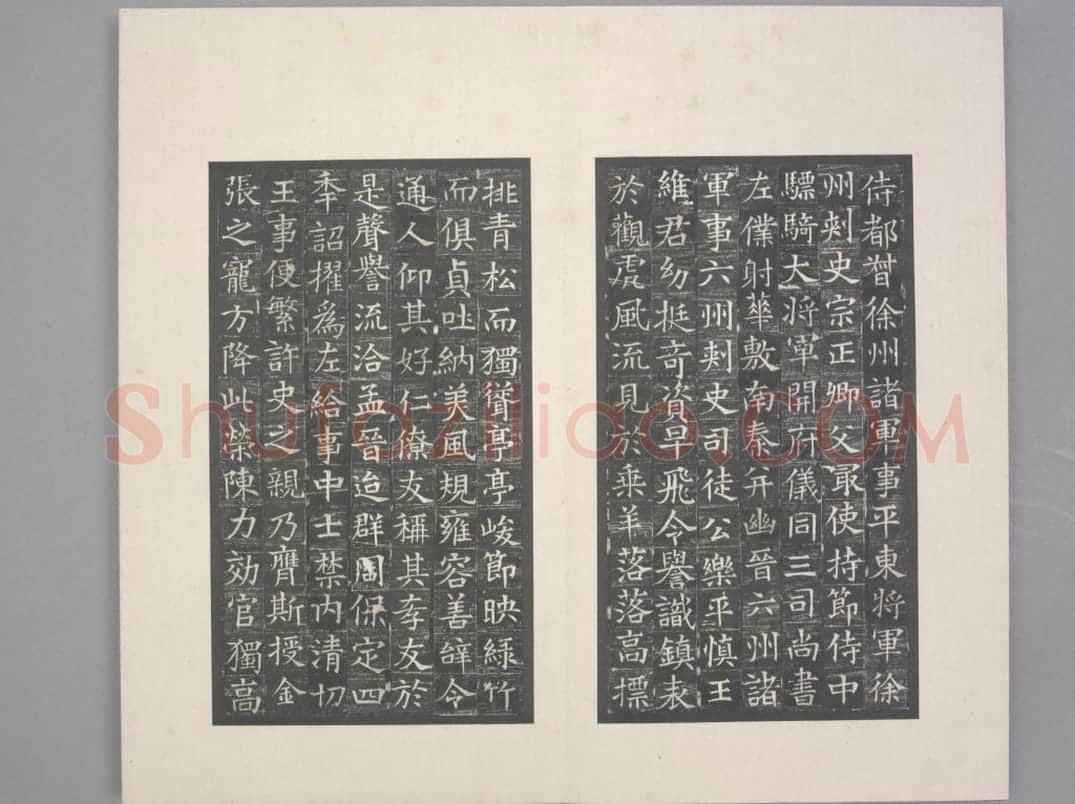 侍都督徐州諸軍事平東將軍徐
州刺史宗正卿父最使持節侍中
驃騎大將軍開府儀同三司尚書
左僕射華敷南秦并幽晉六州諸
軍事六州刺史司徒公樂平慎王
維君幼挺奇姿早飛令譽識鎮表
於觀虎風流見於乘羊落落高摽
排青松而獨聳亭亭峻節映綠竹
而俱貞吐納美風規雍容善辭令
通人仰其好仁僚友稱其孝友於
是聲譽流洽孟晉迨群周保定四
年詔擢為左給事中士禁內清切
王事便繁許史之親乃膺斯授金
張之寵方降此榮陳力効官獨高
Shufaziliao.COM